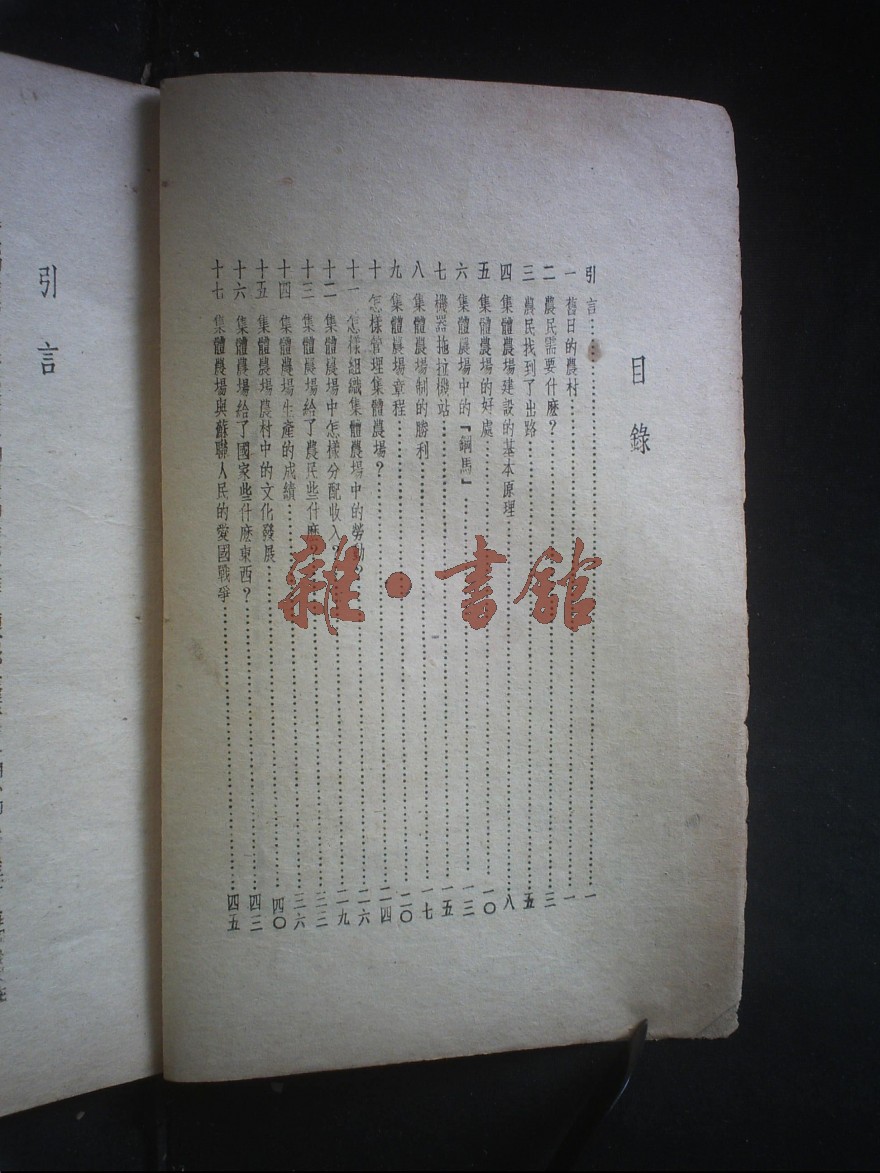 目錄
引言……一
一 舊日的農村……一
二 農民需要什麽？……三
三 農民找到了出路……五
四 集體農場建設的基本原理……八
五 集體農場的好處……一〇
六 集體農場中的『鋼馬』……一三
七 機器拖拉機站……一五
八 集體農場制的勝利……一七
九 集體農場章程……二〇
十 怎樣管理集體農場？……二四
十一 怎樣組織集體農場中的勞動？……二六
十二 集體農場中怎樣分配收入？……二九
十三 集體農場給了農民些什麽？……三三
十四 集體農場生產的成績……三六
十五 集體農場農村中的文化發展……四〇
十六 集體農場給了國家些什麽東西？……四三
十七 集體農場與蘇聯人民的愛國戰爭……四五
引言
雜·書館